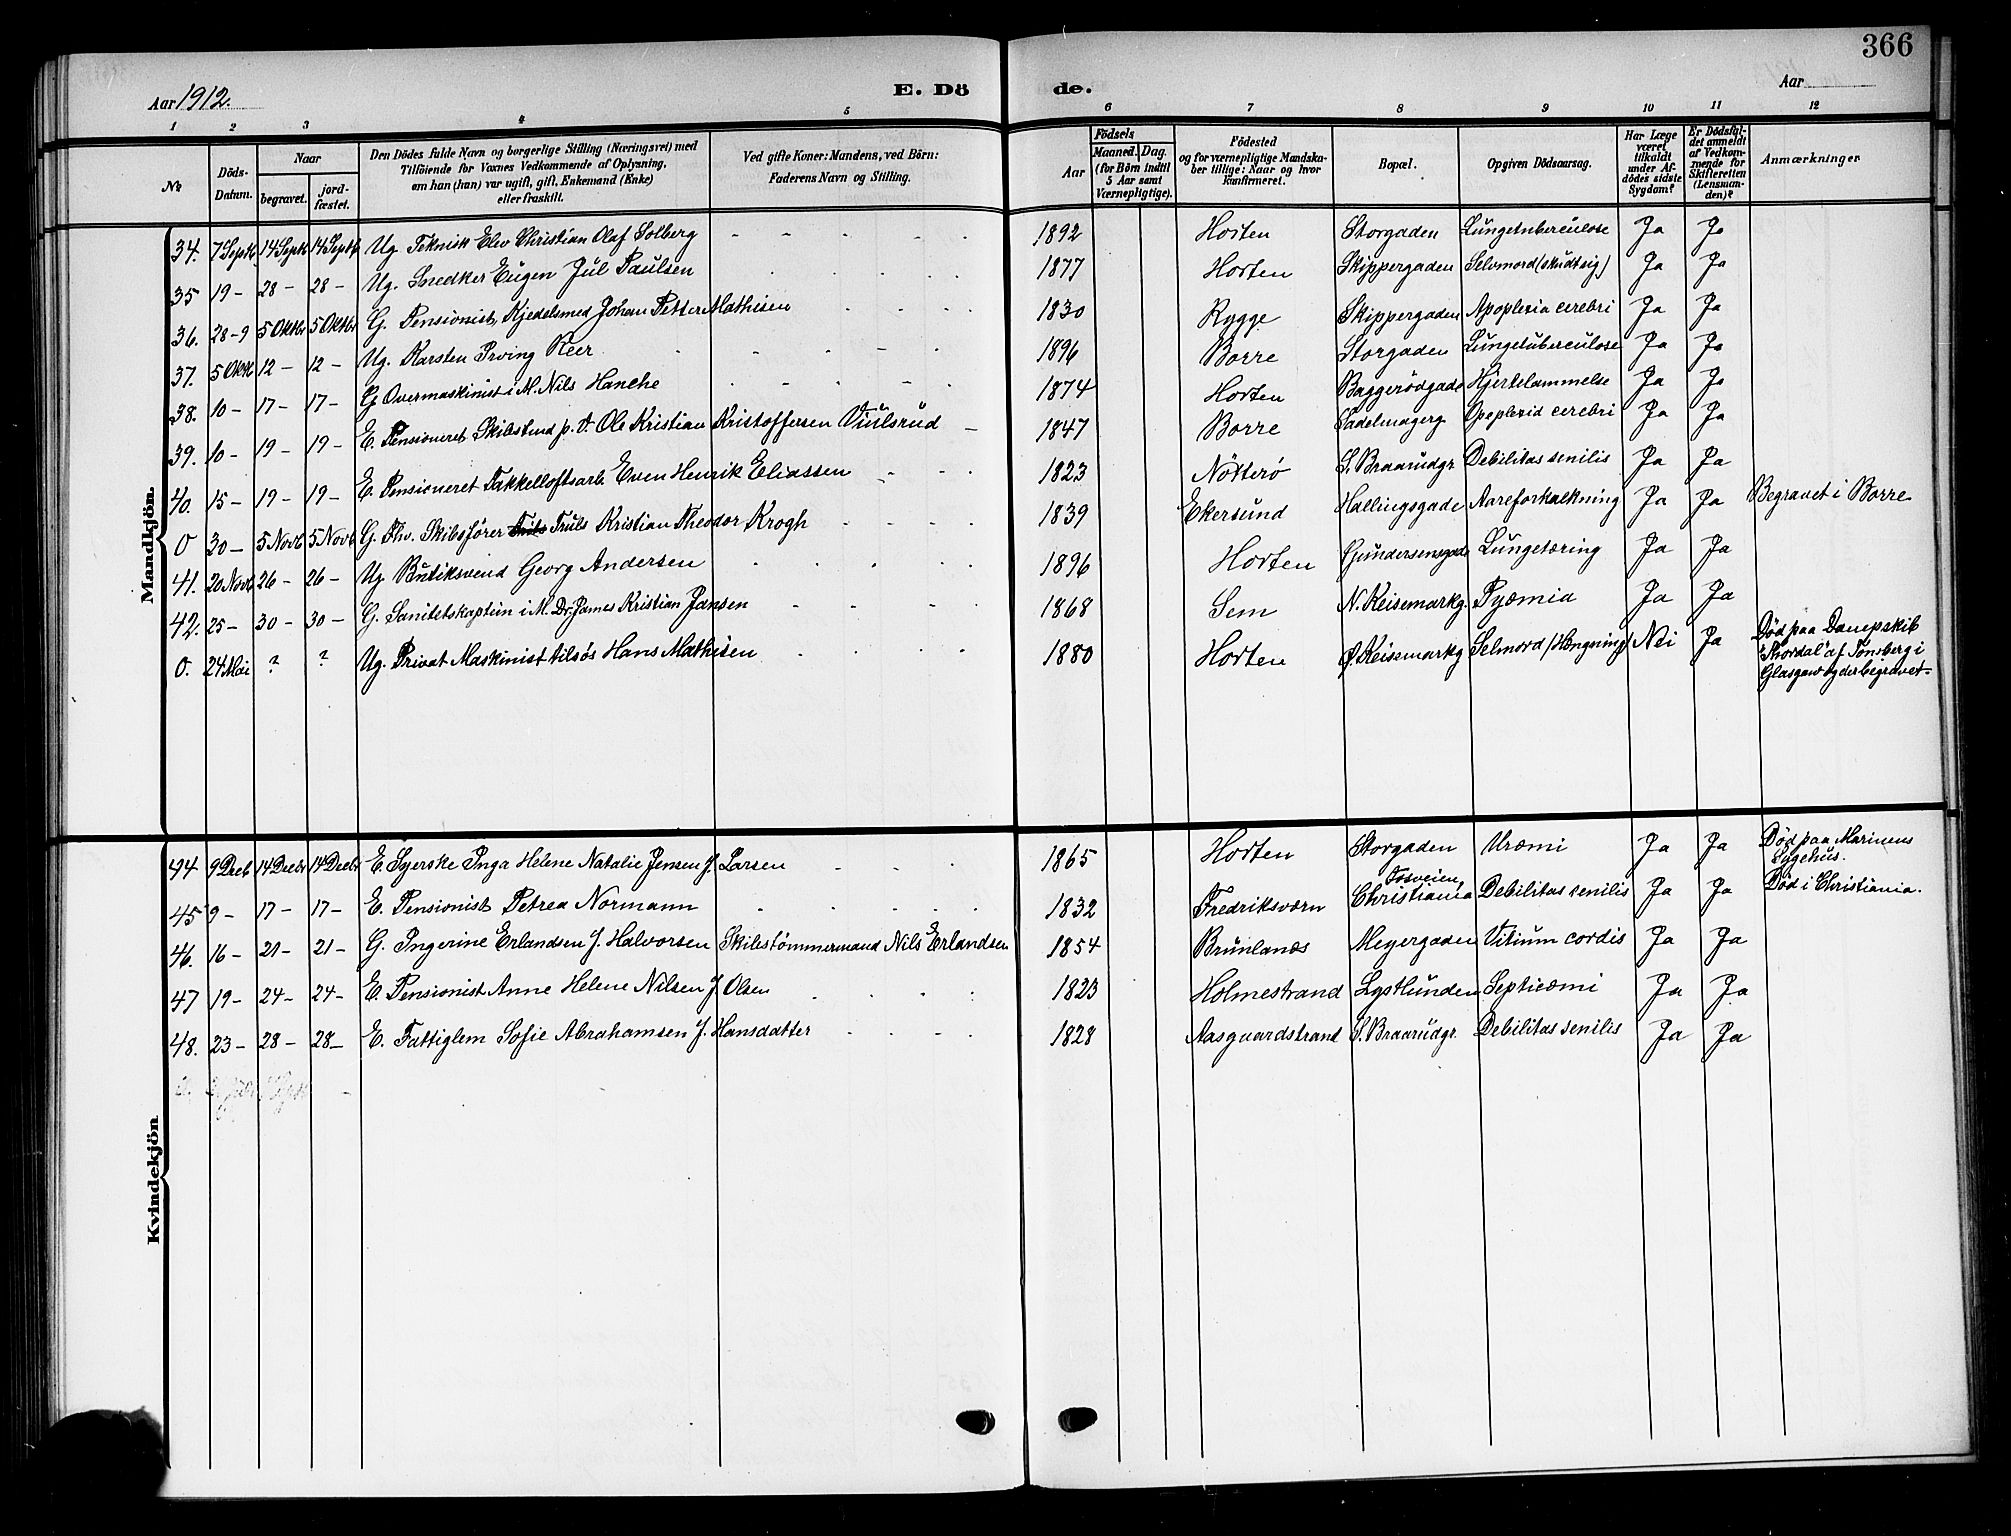 366
Aar 1912.
E. Dö de.
Aar
1 2 3 4 5 6 7 8 9 10 11 12
No
Döds-Datum.
Naar
begravet.
jord-fæstet.
Den Dödes fulde Navn og borgerlige Stilling (Næringsvei) med
Tilföiende for Voxnes Vedkommende af Oplysning,
om han (hun) var ugift, gift, Enkemand (Enke)
eller fraskilt.
Ved gifte Koner: Mandens, ved Börn:
Faderens Navn og Stilling.
Födsels
Aar
Maaned. Dag.
(for Börn indtil
5 Aar samt
Værnepligtige).
Födested
og for værnepligtige Mandska-
ber tillige: Naar og hvor
konfirmeret.
Bopæl.
Opgiven Dödsaarsag.
Har Læge
været
tilkaldt
under Af-
dödes sidste
Sygdom?
Er Dödsfal-
det anmeldt
af Vedkom-
mende for
Skifteretten
(Lensman-
den)?
Anmærkninger
Mandkjön.
34. 7 Septb 14 Septb 14 Septb Ug. Teknisk Elev Christian Olaf Solberg 1892 Horten Storgaden Lungetuberculose Ja Ja
35 19 - 28 - 28 - Ug. Snedker Eugen Jul Paulsen 1877 Horten Skippergaden Selvmord (skudt sig) Ja Ja
36. 28-9 5 Oktbr 5 Oktbr G. Pensionist, Kjedelsmed Johan Petter Mathisen 1830 Rygge Skippergaden Apoplexia cerebri Ja Ja
37. 5 Oktb 12 - 12 - Ug. Karsten Irving Reer 1896 Borre Storgaden Lungetuberculose Ja Ja
38. 10 - 17 - 17 - G Overmaskinist i M. Nils Hanche 1874 Horten Baggerödgade Hjertelammelse Ja Ja
39. 10 - 19 - 19 - E. Pensioneret Skibstmd p. t. Ole Kristian Kristoffersen Viulsrud 1847 Borre Sadelmagerg Apoplexia cerebri Ja Ja
40. 15 - 19 - 19 - E. Pensioneret Takkelloftsarb. Even Henrik Eliassen 1823 Nötterö S. Braarudgr Debilitas senilis Ja Ja
0 30 - 5 Novb 5 Novb G. Fhv. Skibsförer Truls Kristian Theodor Krogh 1839 Ekersund Hallingsgade Aareforkalkning Ja Ja Begravet i Borre
41. 20 Novb 26 - 26 - Ug. Butiksvend Georg Andersen 1896 Horten Gundersensgade Lungetæring Ja Ja
42. 25 - 30 - 30 - G. Sanitetskaptein i M. Dr. James Kristian Jansen 1868 Sem N. Keisemarkg. Pyæmia Ja Ja
0. 24 Mai ? ? Ug. Privat Maskinist tilsøs Hans Mathisen 1880 Horten Ø. Keisemarkg Selmord (Hængning) Nei Ja Død paa Dampskib
"Nordal" af Tönsberg i
Glasgow og der begravet -
Kvindekjön
44 9 Dceb 14 Decbr 14 Decbr E. Syerske Inga Helene Natalie Jensen f. Larsen 1865 Horten Storgaden Uræmi Ja Ja Död paa Marinens
Sygehus.
45 9 - 17 - 17 - E. Pensionist Petrea Normann 1832 Fredriksværn Fosveien, Christiania Debilitas senilis Ja Ja Död i Christiania.
46. 16 - 21 - 21 - G. Ingerine Erlandsen f. Halvorsen Skibstömmermand Nils Erlandsen 1854 Brunlanæs Meyergaden Vitium cordis Ja Ja
47 19 - 24 - 24 - E. Pensionist Anne Helene Nilsen f. Olsen 1823 Holmestrand Lystlunden Septicæmi Ja Ja
48. 23 - 28 - 28 - E. Fattiglem Sofie Abrahamsen f. Hansdatter 1828 Aasgaardstrand S. Braarudgr. Debilitas senilis Ja Ja